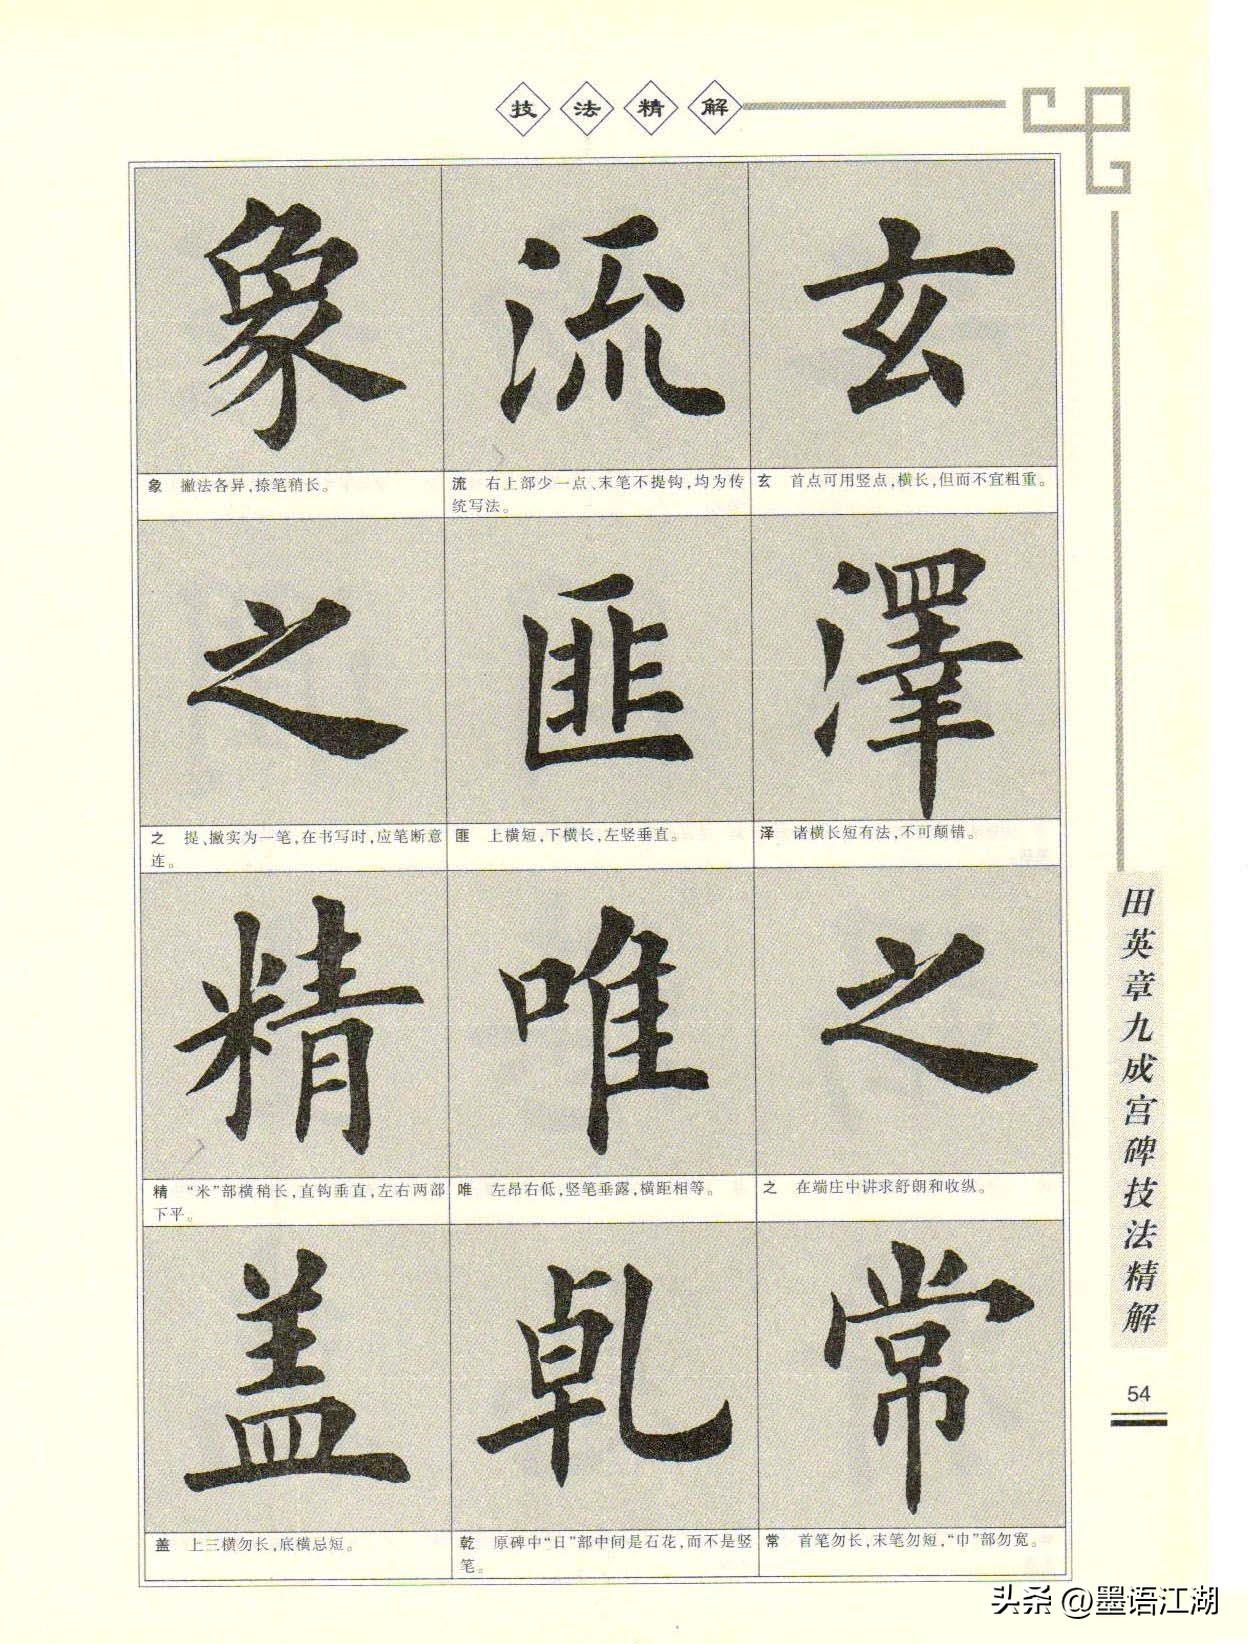 技法精解
象 流 玄
象 撇法各异,捺笔稍长。
流 右上部少一点、末笔不提钩,均为传
统写法。
玄 首点可用竖点,横长,但而不宜粗重。
之 匪 澤
之 提、撇实为一笔,在书写时,应笔断意
连。
匪 上横短,下横长,左竖垂直。
泽 诸横长短有法,不可颠错。
精 唯 之
精 “米”部横稍长,直钩垂直,左右两部
下平。
唯 左昂右低,竖笔垂露,横距相等。
之 在端庄中讲求舒朗和收纵。
盖 乹 常
盖 上三横勿长,底横忌短。
乾 原碑中“日”部中间是石花,而不是竖
笔。
常 首笔勿长,末笔勿短,“巾”部勿宽。
田英章九成宫碑技法精解
54
头条 @墨语江湖